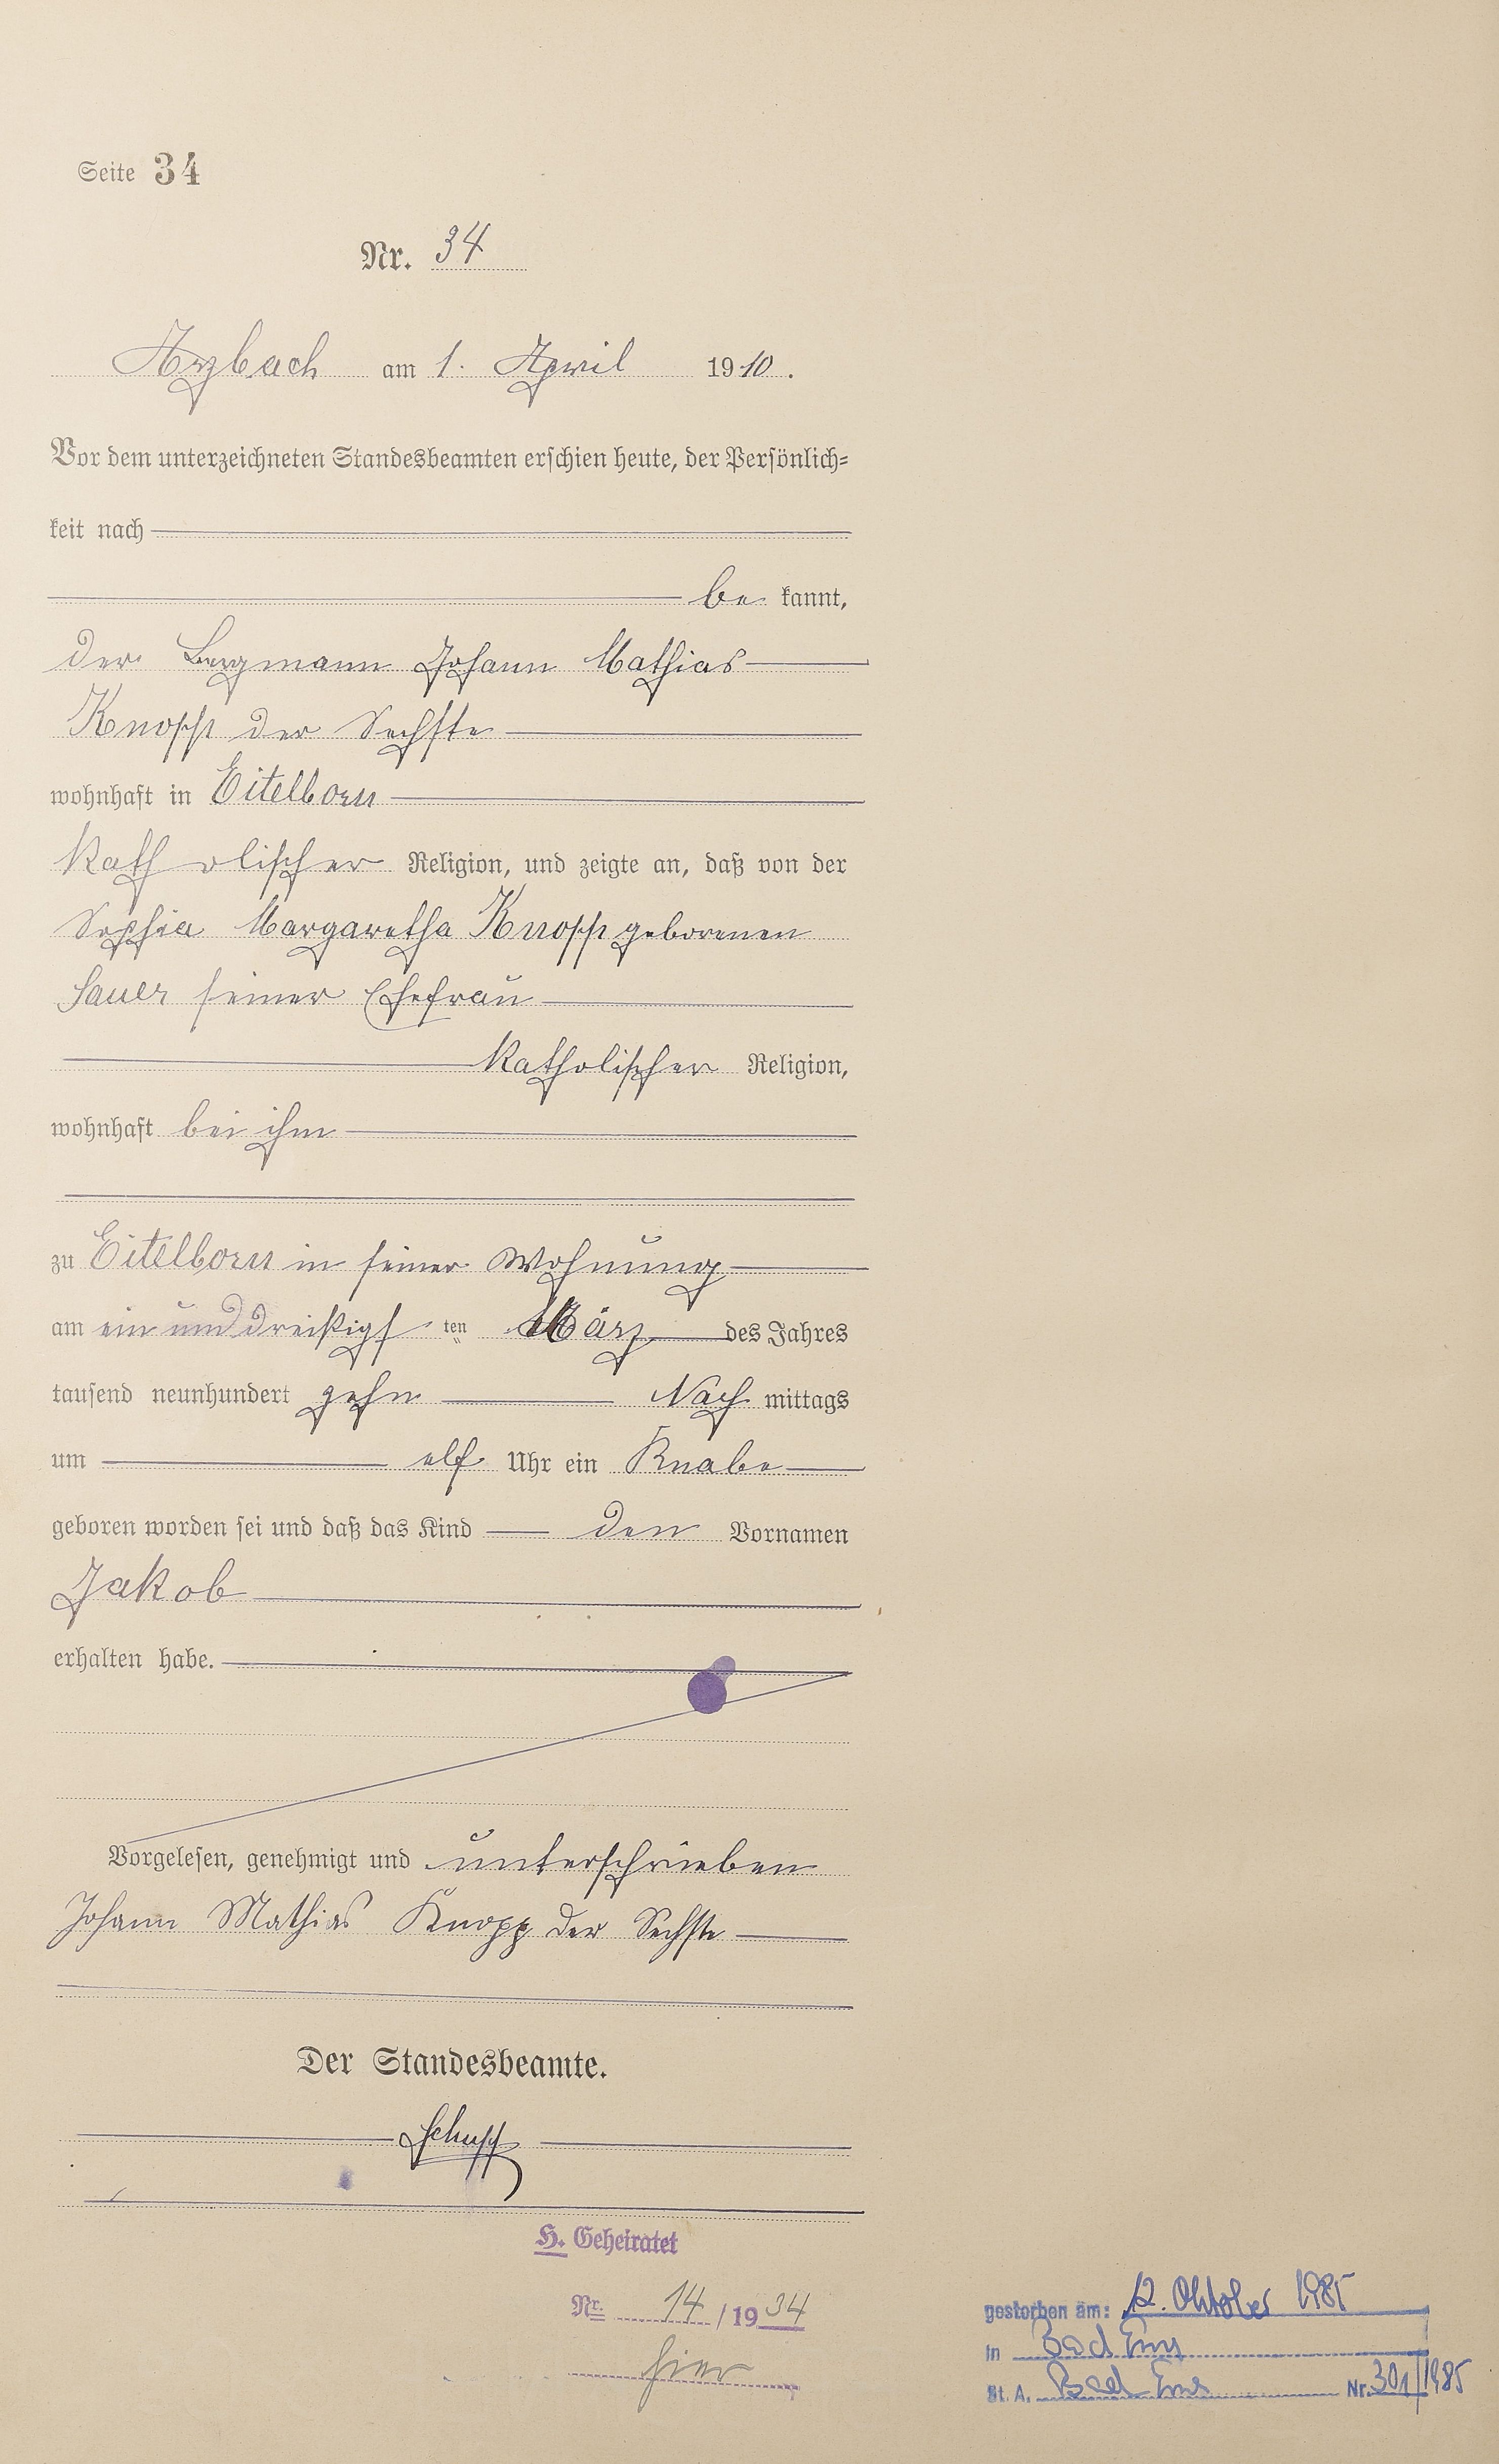 Seite 34
Nr. 34
Arzbach am 1. April 1910.
Vor dem unterzeichneten Standesbeamten erschien heute, der Persönlich-
keit nach
be kannt,
der Bergmann Johann Mathias
Knopp der Sechste
wohnhaft in Eitelborn
Katholischer Religion, und zeigte an, daß von der
Sophia Margaretha Knopp geborenen
Sauer seiner Ehefrau
Katholischer Religion,
wohnhaft bei ihm
zu Eitelborn in seiner Wohnung
am ein und dreißigs ten März des Jahres
tausend neunhundert zehn Nach mittags
um elf Uhr ein Knabe
geboren worden sei und daß das Kind den Vornamen
Jakob
erhalten habe.
Vorgelesen, genehmigt und unterschrieben
Johann Mathias Knopp der Sechste
Der Standesbeamte.
Schupp
H. Geheiratet
Nr. 14 / 1934
hier
gestorben am: 12. Oktober 1985
in Bad Ems
St. A. Bad Ems Nr. 301/1985